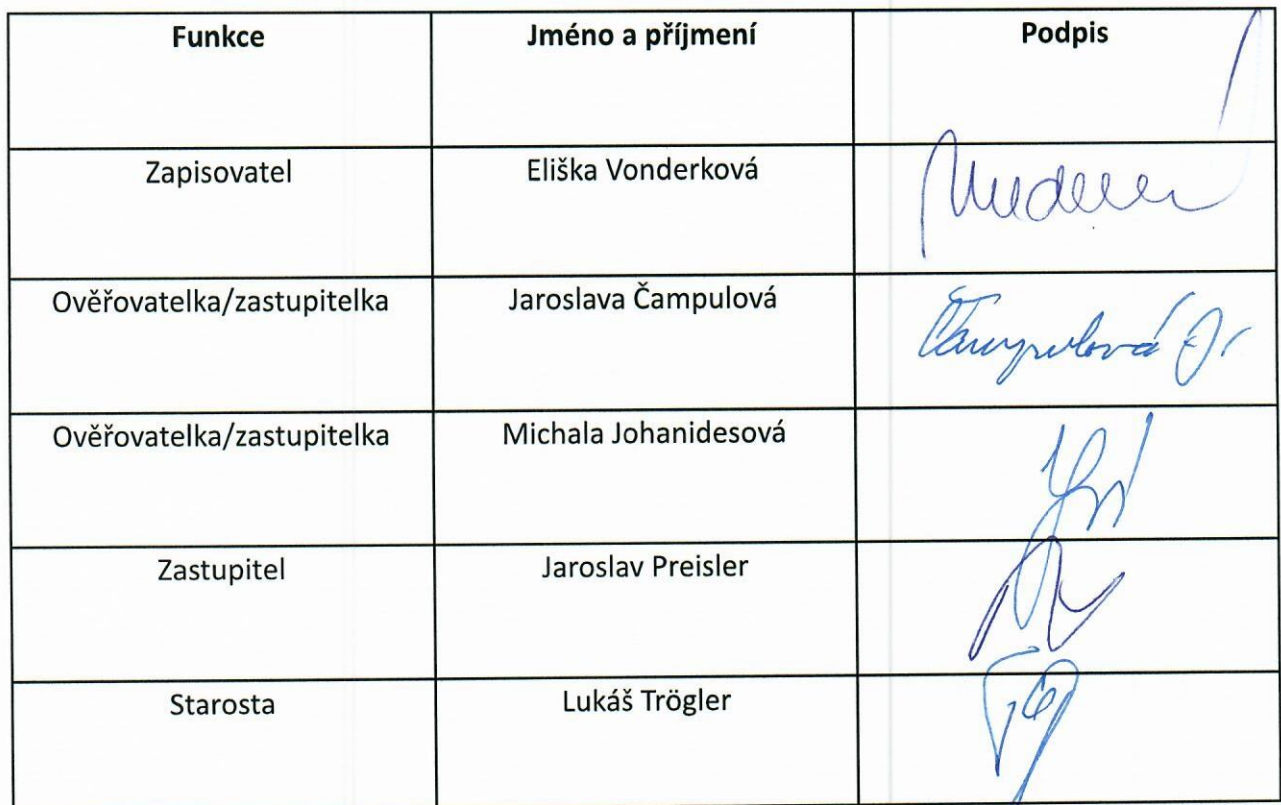 Funkce Jméno a příjmení Podpis
Zapisovatel Eliška Vonderková
Ověřovatelka/zastupitelka Jaroslava Čampulová Čampulová J.
Ověřovatelka/zastupitelka Michala Johanidesová
Zastupitel Jaroslav Preisler
Starosta Lukáš Trögler